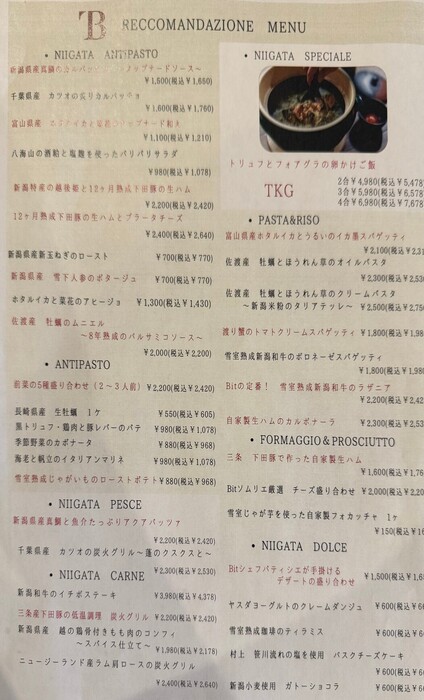 B RECCOMANDAZIONE MENU
• NIIGATA ANTIPASTO
新潟県産真鯛のカルパッチョ
ップナードソース～
￥1,500(税込￥1,650)
千葉県産 カツオの炙りカルパッチョ
￥1,600(税込￥1,760)
富山県産
￥1,100(税込￥1,210)
八海山の酒粕と塩麹を使ったパリパリサラダ
￥980(税込￥1,078)
新潟特産の越後姫と12ヶ月熟成下田豚の生ハム
￥2,200(税込￥2,420)
12ヶ月熟成下田豚の生ハムとブラータチーズ
￥2,400(税込￥2,640)
新潟県産新玉ねぎのロースト ￥700(税込￥770)
新潟県産 雪下人参のポタージュ ￥700(税込￥770)
ホタルイカと菜花のアヒージョ ￥1,300(税込￥1,430)
佐渡産 牡蠣のムニエル
～8年熟成のバルサミコソース～
￥2,000(税込￥2,200)
• ANTIPASTO
前菜の5種盛り合わせ(2～3人前) ￥2,200(税込￥2,420)
長崎県産 生牡蠣 1ケ ￥550(税込￥605)
黒トリュフ・鶏肉と豚レバーのパテ ￥980(税込￥1,078)
季節野菜のカポナータ ￥880(税込￥968)
海老と帆立のイタリアンマリネ ￥980(税込￥1,078)
雪室熟成じゃがいものローストポテト ￥880(税込￥968)
• NIIGATA PESCE
新潟県産真鯛と魚介たっぷりアクアパッツァ
￥2,200(税込￥2,420)
千葉県産 カツオの炭火グリル～蓬のクスクスと～
￥2,300(税込￥2,530)
• NIIGATA CARNE
新潟和牛のイチボステーキ ￥3,980(税込￥4,378)
三条産下田豚の低温調理 炭火グリル ￥2,200(税込￥2,420)
新潟県産 越の鶏骨付きもも肉のコンフィ
～スパイス仕立て～ ￥1,980(税込￥2,178)
ニュージーランド産ラム肩ロースの炭火グリル
￥2,400(税込￥2,640)
• NIIGATA SPECIALE
トリュフとフォアグラの卵かけご飯
TKG
2合￥4,980(税込￥5,478
3合￥5,980(税込￥6,578
4合￥6,980(税込￥7,678
• PASTA&RISO
富山県産ホタルイカとうるいのイカ墨スパゲッティ
￥2,100(税込￥2,31
佐渡産 牡蠣とほうれん草のオイルパスタ
￥2,300(税込￥2,53
佐渡産 牡蠣とほうれん草のクリームパスタ
～新潟米粉のタリアテッレ～ ￥2,500(税込￥2,75
渡り蟹のトマトクリームスパゲッティ ￥1,800(税込￥1,98
雪室熟成新潟和牛のボロネーゼスパゲッティ
￥1,800(税込￥1,98
Bitの定番！ 雪室熟成新潟和牛のラザニア
￥2,200(税込￥2,42
自家製生ハムのカルボナーラ ￥2,300(税込￥2,53
• FORMAGGIO＆PROSCIUTTO
三条 下田豚で作った自家製生ハム
￥1,600(税込￥1,76
Bitソムリエ厳選 チーズ盛り合わせ ￥2,000(税込￥2,20
雪室じゃが芋を使った自家製フォカッチャ 1ヶ
￥150(税込￥16
• NIIGATA DOLCE
Bitシェフパティシエが手掛ける
デザートの盛り合わせ ￥1,500(税込￥1,65
ヤスダヨーグルトのクレームダンジュ ￥600(税込￥66
雪室熟成珈琲のティラミス ￥600(税込￥66
村上 笹川流れの塩を使用 バスクチーズケーキ
￥600(税込￥66
新潟小麦使用 ガトーショコラ ￥600(税込￥66